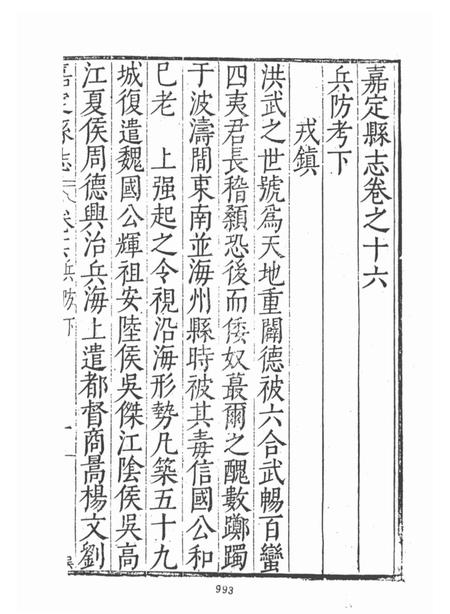 嘉定縣志卷之十六
兵防考下
戎鎮
洪武之世號爲天地重闢德被六合武暢百蠻
四夷君長稽顙恐後而倭奴蕞爾之醜數躑躅
于波濤間東南並海州縣時被其毒信國公和
巳老　上强起之令視沿海形勢凡築五十九
城復遣魏國公輝祖安陸侯吳傑江陰侯吳高
江夏侯周德興治兵海上遣都督商暠楊文劉
嘉定縣志 卷十六兵防下 一
993